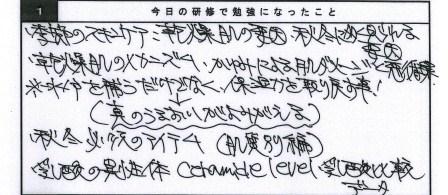 1 今日の研修で勉強になったこと
季節のスキンケア: 乾燥肌の要因 秋冬によく見られる
要因
乾燥肌のメカニズム、かゆみによる肌ダメージ
※水分を補うだけでなく、保湿力を取り戻す事!
(真のうるおいがよみがえる)
秋冬必須のアイテム (肌質別編)
乳酸の異性体 ceramide level 乳酸比較
データ